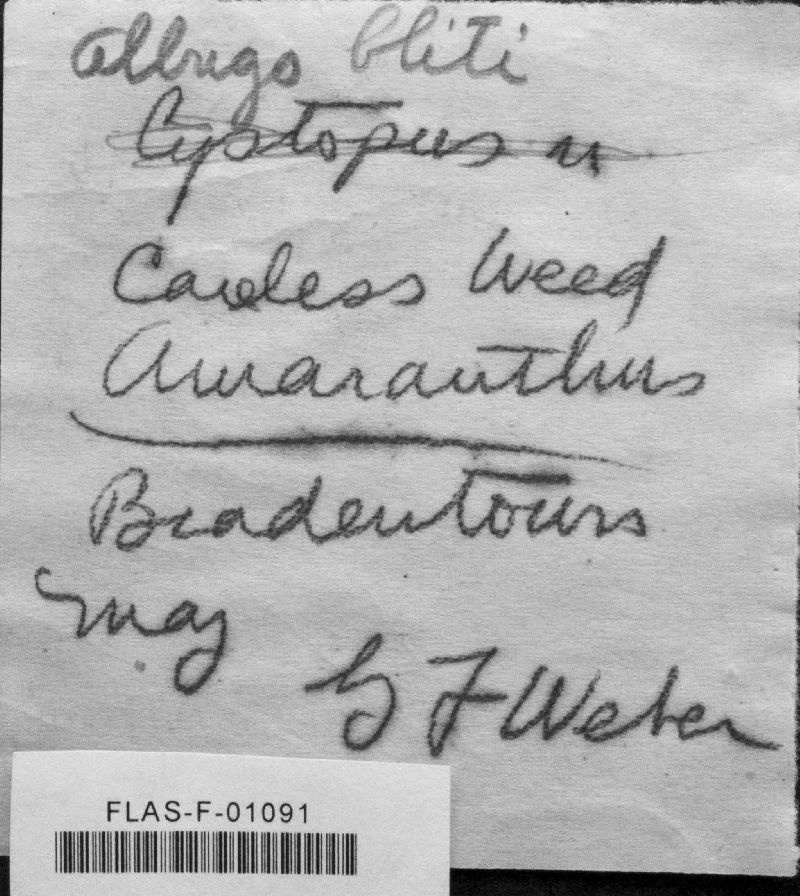 Albugo bliti
Cystopus
Careless Weed
Amaranthus
Bradentown
May
G F Weber
FLAS-F-01091